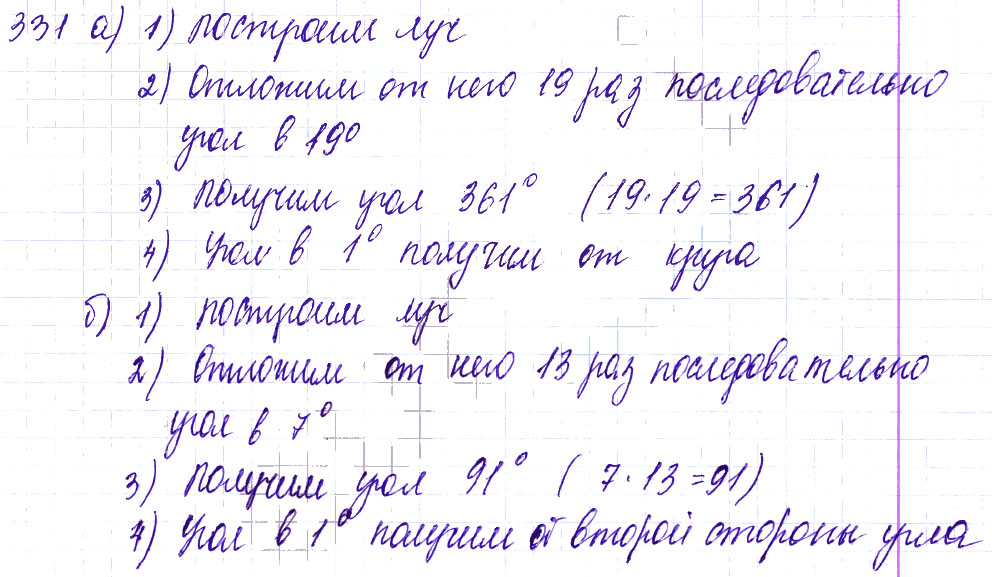 331 а) 1) построим луч
2) Отложим от него 19 раз последовательно
угол в 19°
3) получим угол 361° (19·19=361)
4) Угол в 1° получим от круга
б) 1) построим луч
2) Отложим от него 13 раз последовательно
угол в 7°
3) получим угол 91° (7·13=91)
4) Угол в 1° получим от второй стороны угла